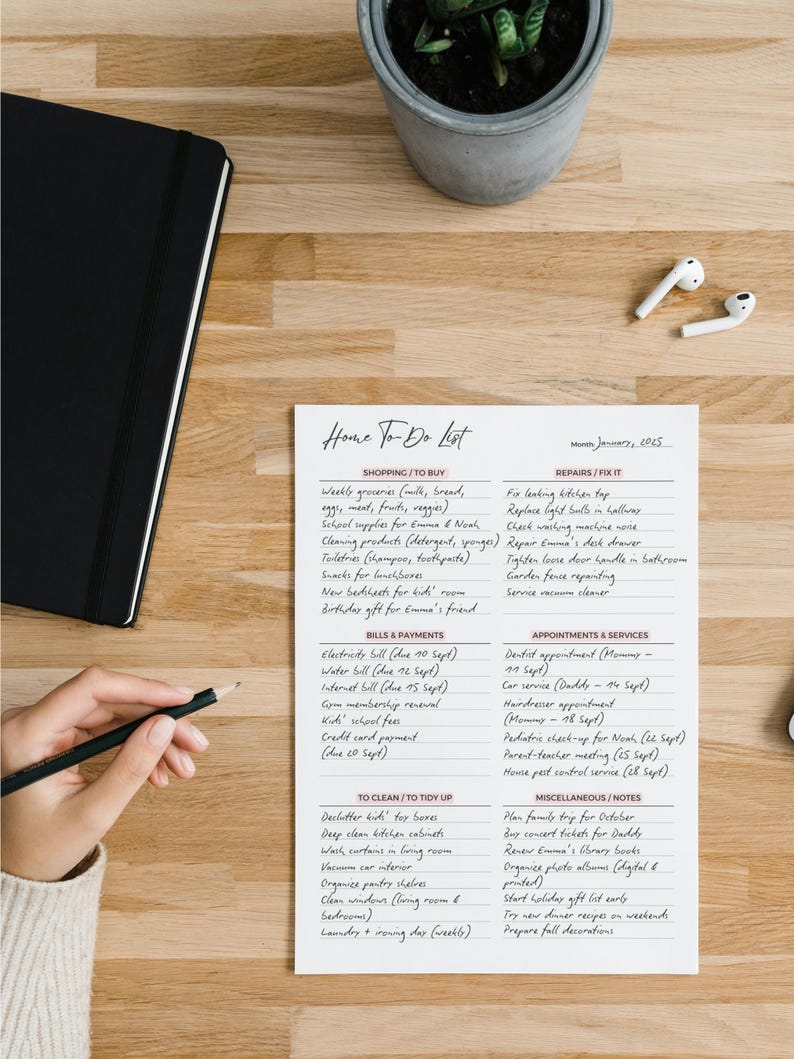 Home To-Do List
Month: January, 2025
SHOPPING / TO BUY
Weekly groceries (milk, bread,
eggs, meat, fruits, veggies)
School supplies for Emma & Noah
Cleaning products (detergent, sponges)
Toiletries (shampoo, toothpaste)
Snacks for lunchboxes
New bedsheets for kids' room
Birthday gift for Emma's friend
REPAIRS / FIX IT
Fix leaking kitchen tap
Replace light bulb in hallway
Check washing machine noise
Repair Emma's desk drawer
Tighten loose door handle in bathroom
Garden fence repainting
Service vacuum cleaner
BILLS & PAYMENTS
Electricity bill (due 10 Sept)
Water bill (due 12 Sept)
Internet bill (due 15 Sept)
Gym membership renewal
Kids' school fees
Credit card payment
(due 20 Sept)
APPOINTMENTS & SERVICES
Dentist appointment (Mommy –
11 Sept)
Car service (Daddy – 14 Sept)
Hairdresser appointment
(Mommy – 18 Sept)
Pediatric check-up for Noah (22 Sept)
Parent-teacher meeting (25 Sept)
House pest control service (28 Sept)
TO CLEAN / TO TIDY UP
Declutter kids' toy boxes
Deep clean kitchen cabinets
Wash curtains in living room
Vacuum car interior
Organize pantry shelves
Clean windows (living room &
bedrooms)
Laundry + ironing day (weekly)
MISCELLANEOUS / NOTES
Plan family trip for October
Buy concert tickets for Daddy
Renew Emma's library books
Organize photo albums (digital &
printed)
Start holiday gift list early
Try new dinner recipes on weekends
Prepare fall decorations